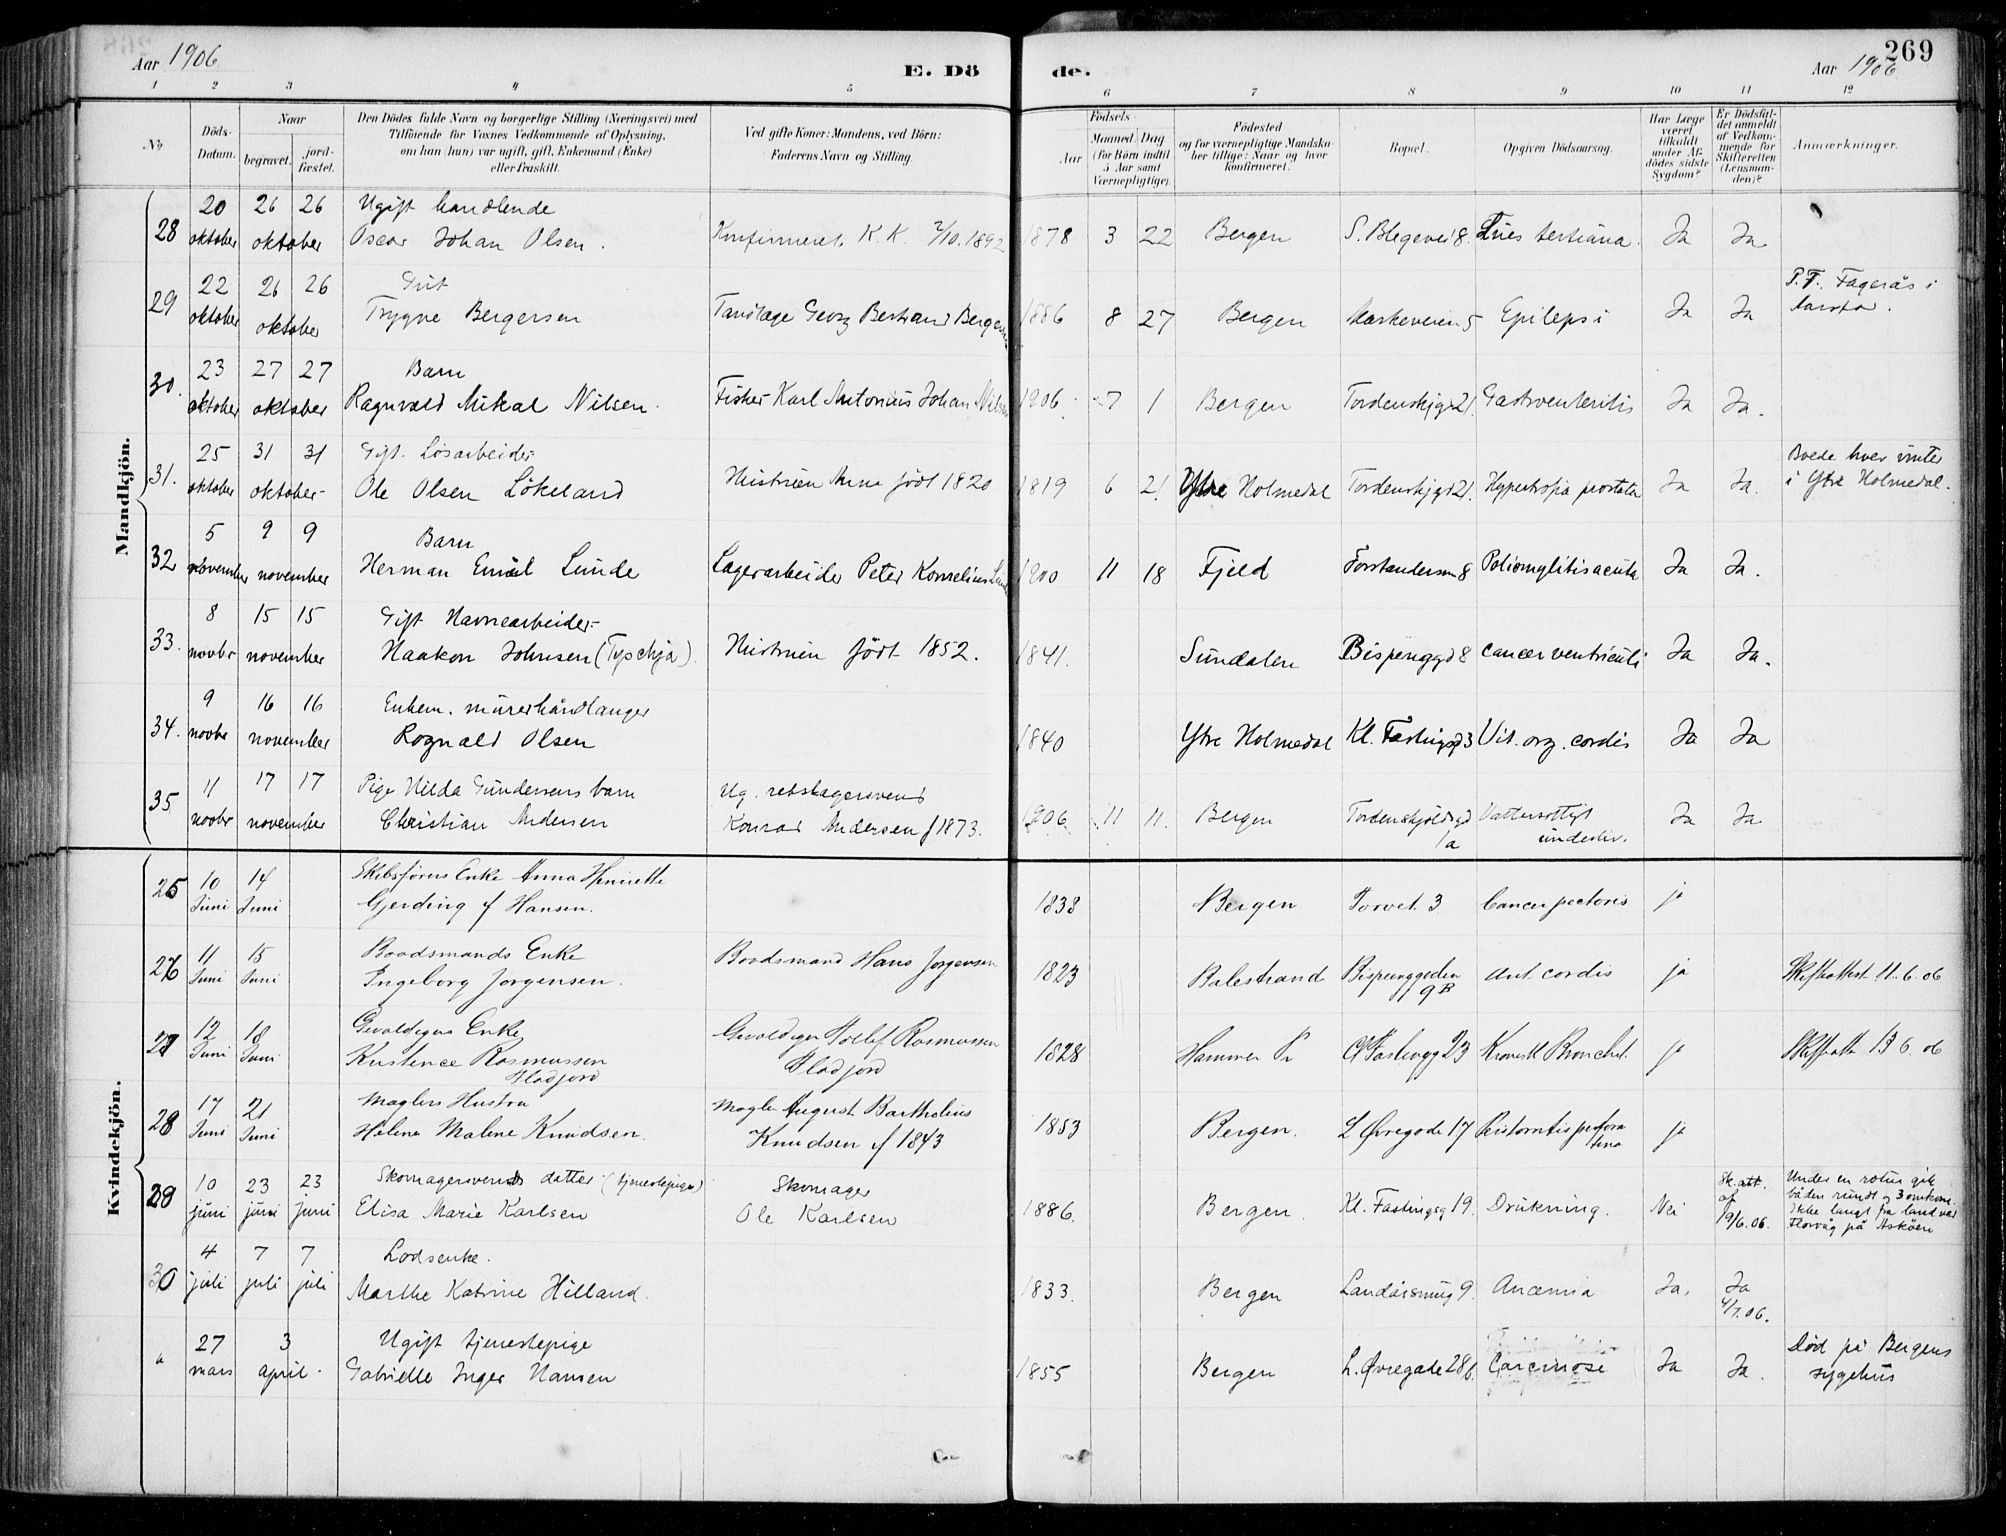 269
Aar 1906. E. Dö de. Aar 1906
1 2 3 4 5 6 7 8 9 10 11 12
No
Döds-Datum.
Naar
begravet.
jord-fæstet.
Den Dödes fulde Navn og borgerlige Stilling (Næringsvei) med
Tilföiende for Voxnes Vedkommende af Oplysning,
om han (hun) var ugift, gift, Enkemand (Enke)
eller fraskilt.
Ved gifte Koner: Mandens, ved Börn:
Faderens Navn og Stilling.
Födsels-
Aar
Maaned. Dag
(for Börn indtil
5 Aar samt
Værnepligtige).
Födested
og for værnepligtige Mandska-
ber tillige: Naar og hvor
konfirmeret.
Bopæl.
Opgiven Dödsaarsag.
Har Læge
været
tilkaldt
under Af-
dödes sidste
Sygdom?
Er Dödsfal-
det anmeldt
af Vedkom-
mende for
Skifteretten
(Lensman-
den)?
Anmærkninger.
Mandkjön.
20 26 26 Ugift handlende
28 oktober oktober Oscar Johan Olsen. Konfirmeret. K. K. 2/10. 1892 1878 3 22 Bergen S. Blegevei 8. Lues tertiana. Ja Ja
22 26 26 P.T. Fagerås i
29 oktober oktober Trygve Bergersen Tandlæge Georg Bertrand Bergersen 1886 8 27 Bergen Markeveien 5 Epilepsi Ja Ja
23 27 27 Barn
30. oktober oktober Ragnvald Mikal Nilsen. Fisker Karl Antonius Johan Nilsen 1906 7 1 Bergen Tordenskjgd 21. Gastroenteritis Ja Ja.
25 31 31 Gift. Løsarbeider Boede hver vinter
31. oktober oktober Ole Olsen Lökeland Hustruen Anna födt 1820 1819 6 21 Ytre Holmedal Tordenskjgd 21. Hypertrofia prostata Ja Ja. i Ytre Holmedal.
5 9 9 Barn
32 november november Herman Emil Lunde Lagerarbeider Peter Kornelius Lunde 1900 11 18 Fjeld Forstandersm 8 Poliomylitis acuta Ja Ja.
8 15 15 Gift Havnearbeider
33. novbr november Haakon Johnsen (Tyschja). Hustruen födt 1852. 1841. Sundalen Bispenggd 8 Cancer ventriculi Ja Ja.
9 16 16 Enkem. murerhåndlanger
34. novbr november Rognald Olsen 1840 Ytre Holmedal Kl. Fastingsgd 3 Vit. org. cordis Ja Ja
11 17 17 Pige Hilda Gundersens barn Ug. rebslagersvend
35 novbr november Christian Andersen Konrad Andersen f 1873. 1906 11 11. Bergen Tordenskjoldsgd 1a Vattersottigt underliv. Ja Ja
Kvindekjön.
10 14 Skibsförers Enke Anna Henriette
25 Juni Juni Gjerding f Hansen. 1838 Bergen Torvet 3 Cancer pectoris ja
11 15 Baadsmands Enke
26 Juni Juni Ingeborg Jorgensen. Baadsmand Hans Jorgensen 1823 Balestrand Bispenggaden 9B Ant cordis ja Skifteattest 11.6.06
12 18 Gevaldigers Enke
27 Juni Juni Kristence Rasmussen Gevaldiger Rasmussen 1828 Hammer Pr Kl Fastingg 23 Kronisk Bronchit. ja Skifteatt 13 6. 06
17 21 Mæglers Hustru Mægler August Barthelius
28 Juni Juni Helene Malene Knudsen. Knudsen f 1843 1853 Bergen. L Øvregade 17 ja
10 23 23 Skomagersvends datter (tjenestepige) Skomager Sk. att. Under en rotur gik
29 juni juni juni Elisa Marie Karlsen Ole Karlsen 1886. Bergen. Kl. Fastingsg 19. Drukning. Nei af båden rundt og 3 omkom.
19/6.06. Ikke langt fra land ved
Florvåg på Asköen
4 7 7 Lodsenke.
30 juli juli juli Marthe Katrine Hilland. 1833. Bergen Landåssmug 9. Anæmia Ja. Ja
4/7.06.
27 3 Ugift tjenestepige Död på Bergens
mars april Gabrielle Inger Hansen 1855 Bergen L. Øvregate 28b. Carcinose Ja Ja. sygehus